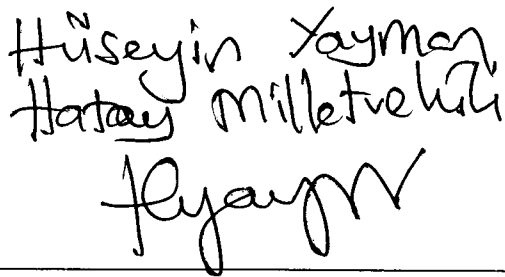 Hüseyin Yayman
Hatay Milletvekili
HYayman